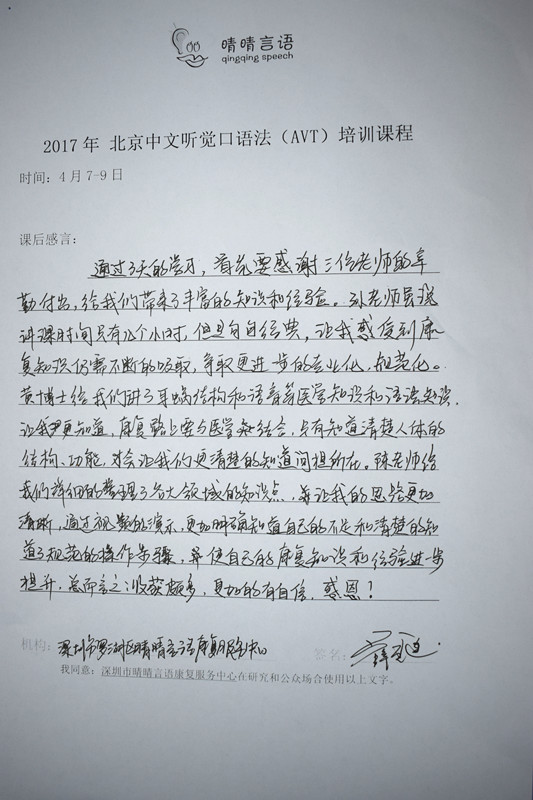 晴晴言语
qingqing speech
2017年 北京中文听觉口语法（AVT）培训课程
时间：4月7-9日
课后感言：
通过3天的学习，首先要感谢三位老师的辛
勤付出，给我们带来了丰富的知识和经验。孙老师虽说
讲课时间只有几个小时，但句句经典，让我感受到康
复知识仍需不断的吸取，争取更进一步的专业化、规范化。
黄博士给我们讲了耳蜗结构和语音等医学知识和语谱知识，
让我更知道，康复路上要与医学相结合，只有知道清楚人体的
结构、功能，才会让我们更清楚的知道问担所在。陈老师给
我们详细的整理了各大领域的知识点，并让我的思路更加
清晰，通过视频的演示，更加明确知道自己的不足和清楚的知
道了规范的操作步骤，并使自己的康复知识和经验进一步
提升，总而言之：收获颇多，更加的有自信，感恩！
机构：深圳市罗湖区晴晴言语康复服务中心 签名：
我同意：深圳市晴晴言语康复服务中心在研究和公众场合使用以上文字。